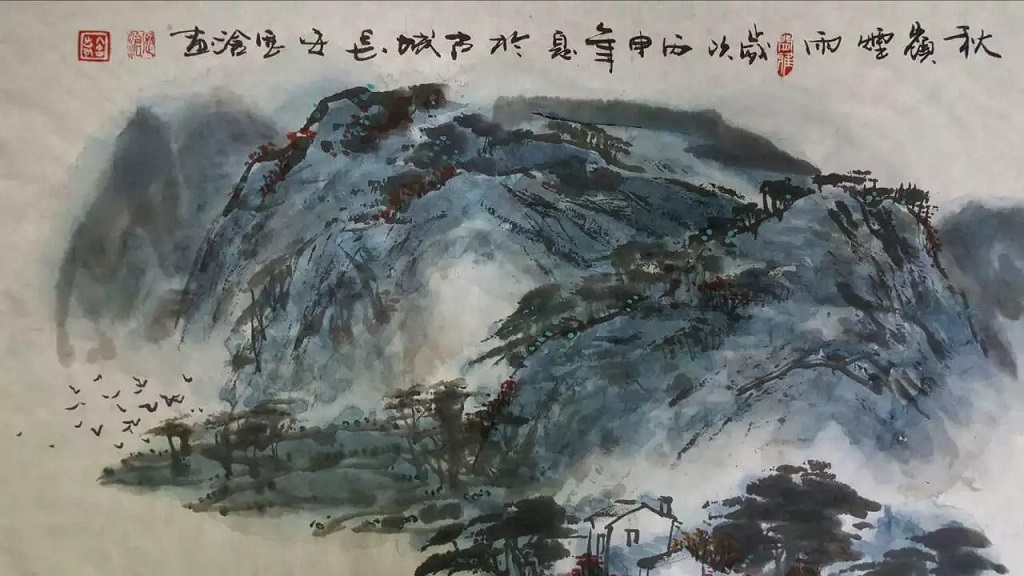 秋嶺煙雨歲次丙申年夏於古城長安雲滄畫